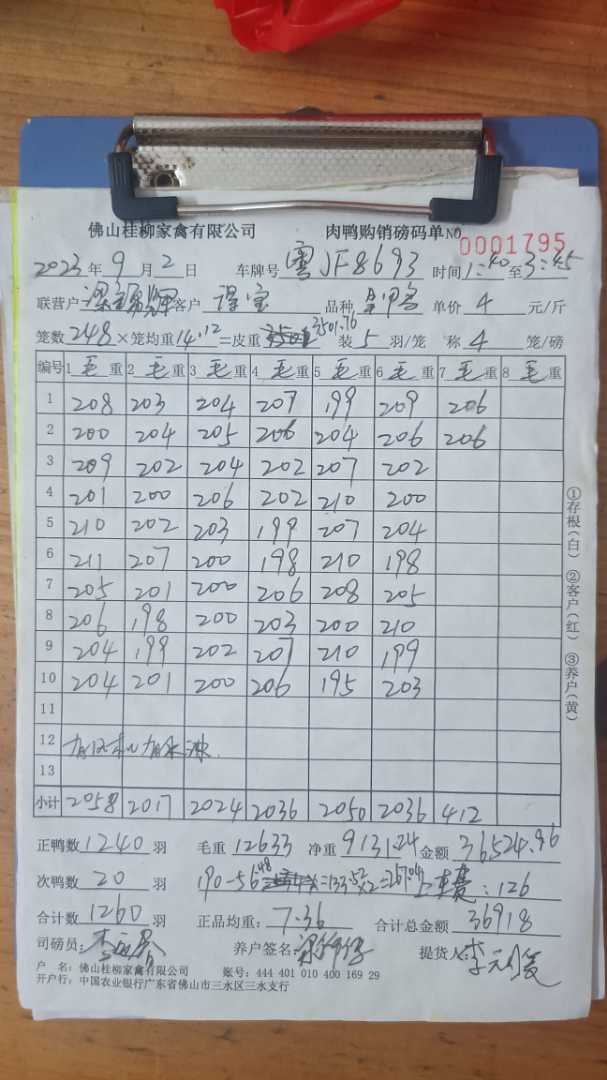 佛山桂柳家禽有限公司 肉鸭购销磅码单 NO 0001795
2023年9月2日 车牌号 粤JF8693 时间1:40至3:45
联营户 客户 品种 单价 4 元/斤
笼数248×笼均重14.12=皮重3501.76 装5羽/笼 称4笼/磅
编号 1毛重 2毛重 3毛重 4毛重 5毛重 6毛重 7毛重 8毛重
1 208 203 204 207 199 209 206
2 200 204 205 206 204 206 206
3 209 202 204 202 207 202
4 201 200 206 202 210 200
5 210 202 203 199 207 204
6 211 207 200 198 210 198
7 205 201 200 206 208 205
8 206 198 200 203 200 210
9 204 199 202 207 210 199
10 204 201 200 206 195 203
11
12
13
小计 2058 2017 2024 2036 2050 2036 412
正鸭数1240羽 毛重12633 净重9131.24 金额36524.96
次鸭数20羽 190-56.48=133.52×2=267.04 :126
合计数1260羽 正品均重:7.36 合计总金额36918
司磅员: 养户签名: 提货人:
户 名:佛山桂柳家禽有限公司 账号:444 401 010 400 169 29
开户行:中国农业银行广东省佛山市三水区三水支行
①存根(白) ②客户(红) ③养户(黄)